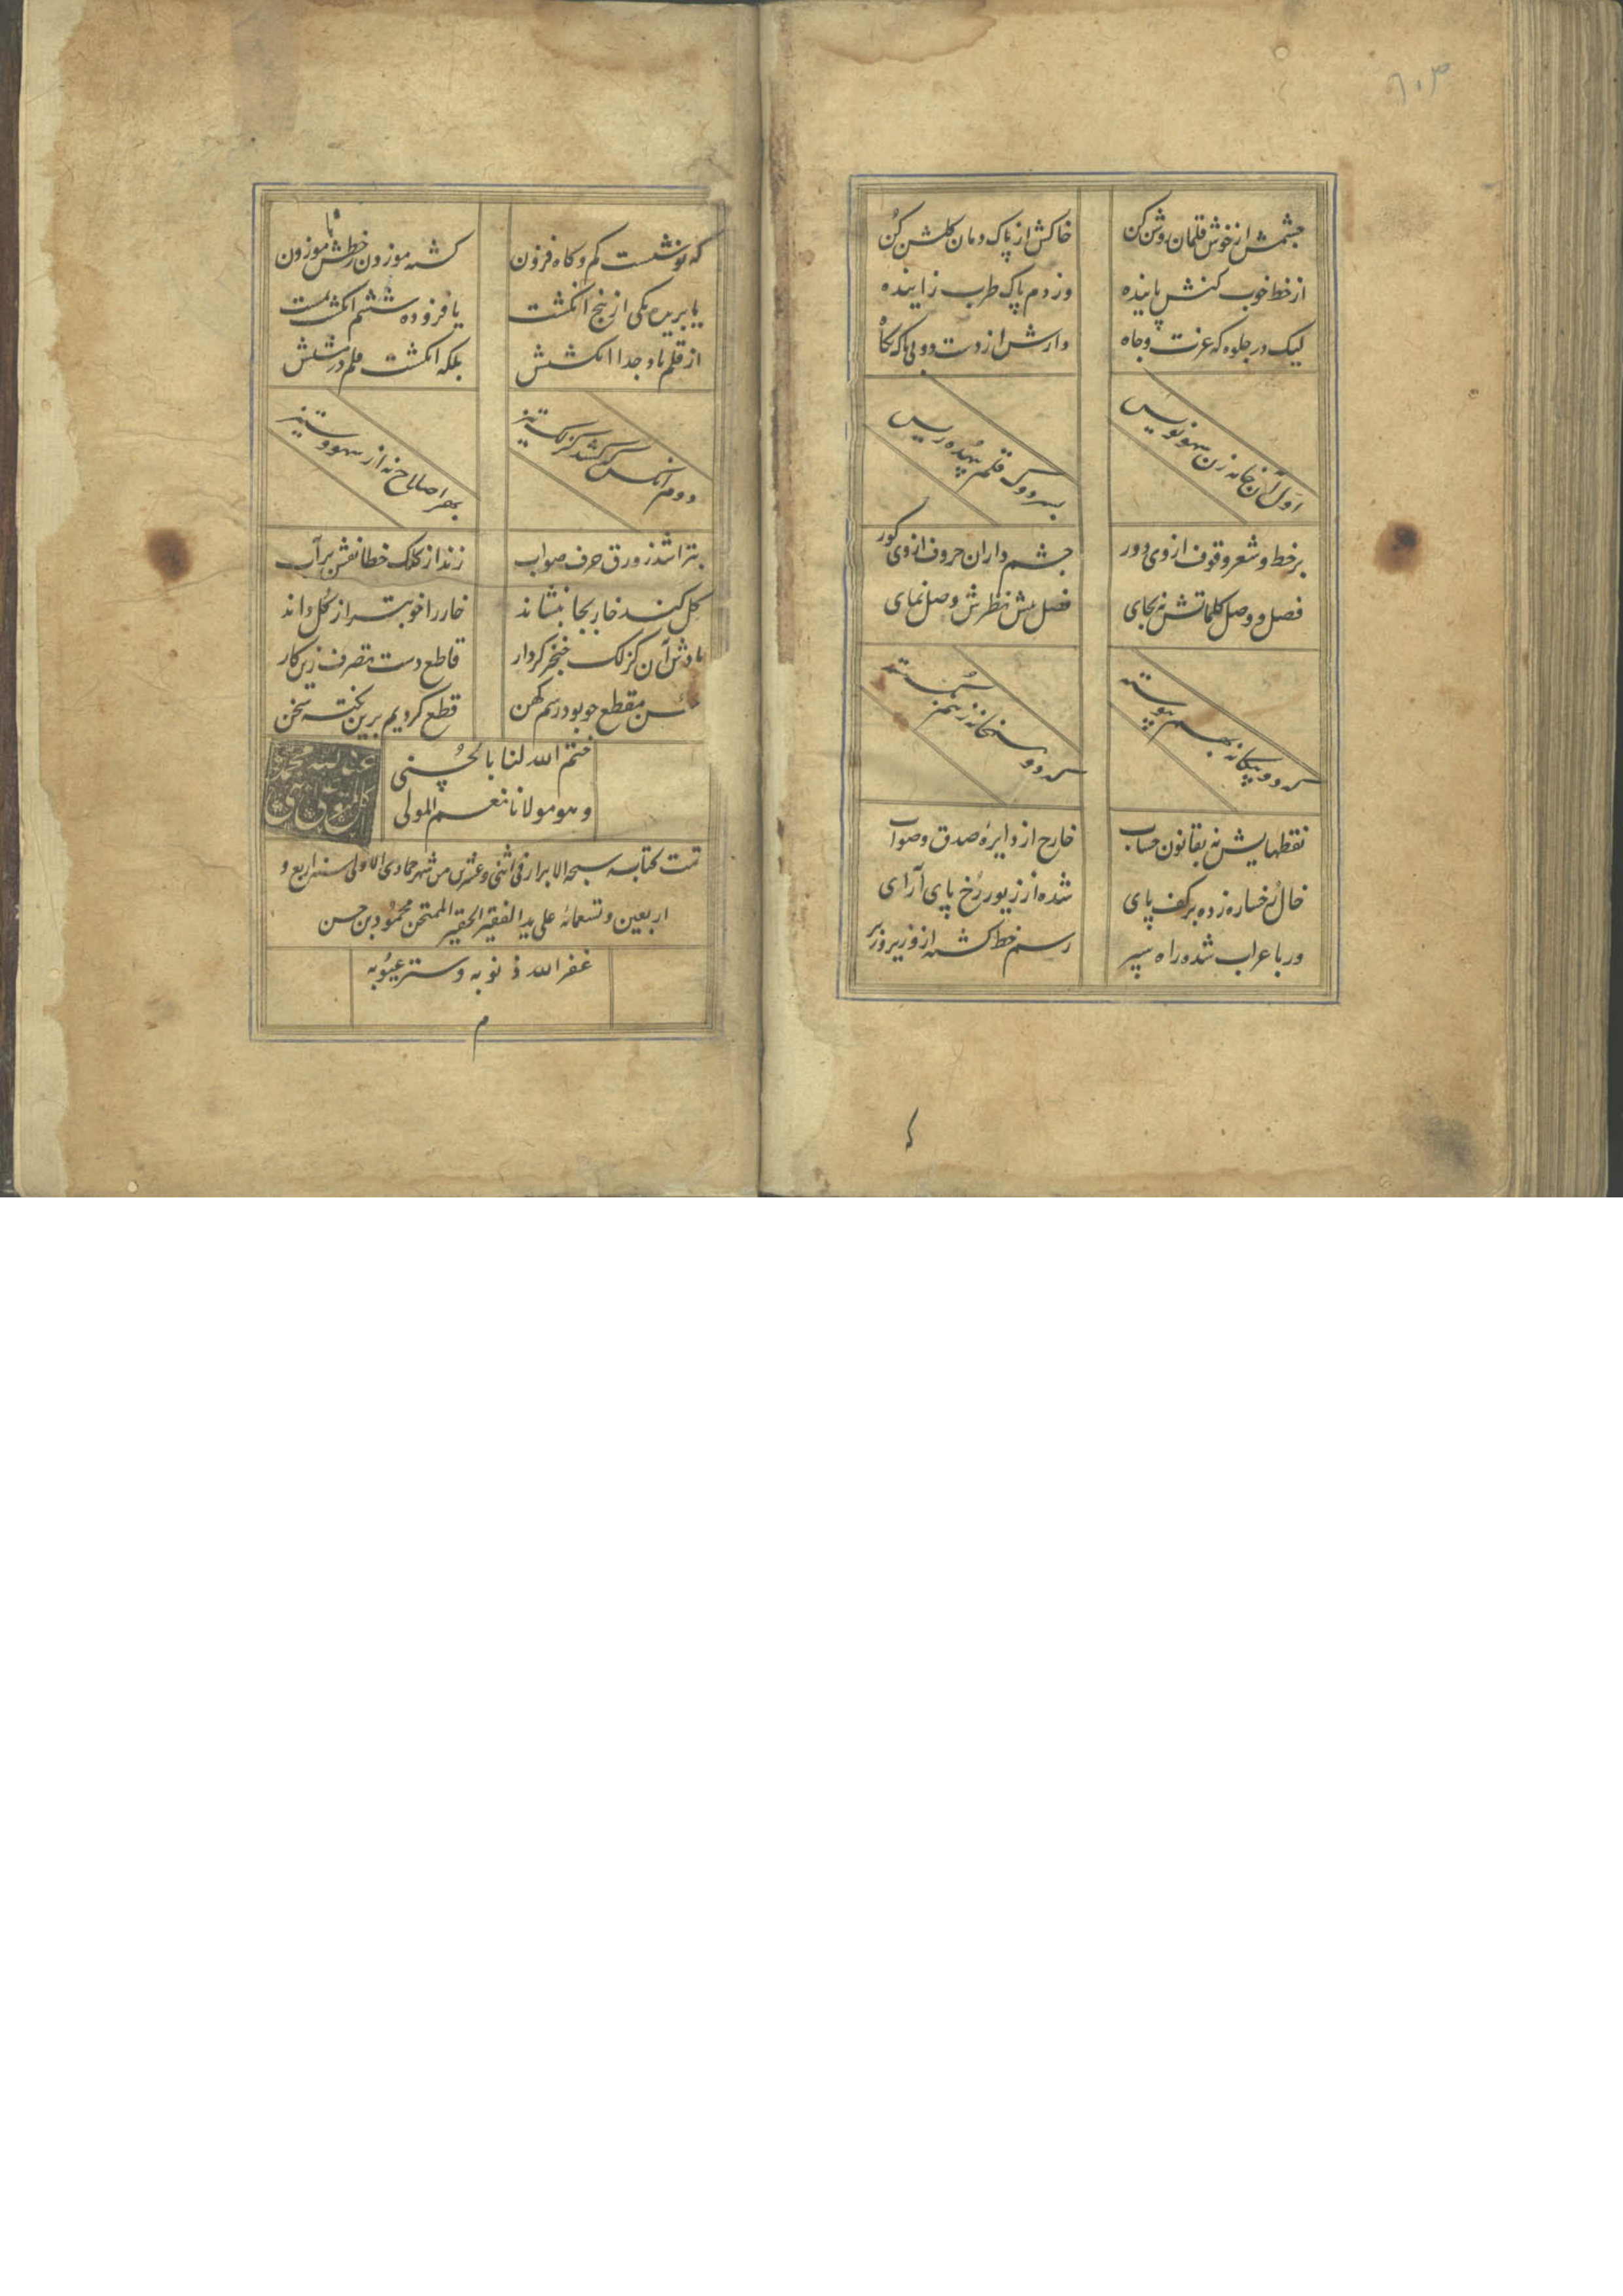 چشمش از خوش قلمان روشن کن خاکش از پاک دمان کلشن کن
از خط خوب کنش پاینده وز دم پاک طرب زاینده
لیک در جلوه که عزت و جاه دارش از دست دو بی باک نکاه
اول آن خانه زن سهو نویس بسر دوک قلم بیهده ریس
بر خط و شعر وقوف از وی دور چشم داران حروف از وی کور
فصل و وصل کلماتش نه بجای فصل پیش نظرش وصل نمای
کرده بیکانه بهم پیوسته کرده همخانه ز هم
نقطهایش نه بقانون حساب خارج از دایره صدق و صواب
خال رخساره زده بر کف پای شده از زیور رخ پای آرای
ور باعراب شده راه سپر رسم خط کشته ازو زیر و زبر
که نوشست کم و کاه فزون کشته موزون ز خطش ناموزون
یا بریده یکی از پنج انکشت یا فزوده ششم انکشت بمشت
از قلم باد جدا انکشتش بلکه انکشت قلم در مشتش
دوم آنکس که کشد کزلک تیز بهر اصلاح نه از سهو و ستیز
بتراشد ز ورق حرف صواب زند از کلک خطا نقش بر آب
کل کند خار بجا بنشاند خار را خوبتر از کل داند
بادش آن کزلک خنجر کردار قاطع دست تصرف زین کار
حسن مقطع چو بود رسم کهن قطع کردیم برین نکته سخن
ختم الله لنا بالحسنی
و هو مولانا نعم المولی
تمت کتابه سبحة الابرار فی اثنی و عشرین من شهر جمادی الاولی سنه اربع و
اربعین و تسعمائه علی ید الفقیر الحقیر الممتحن محمود بن حسن
غفر الله ذنوبه و ستر عیوبه
م